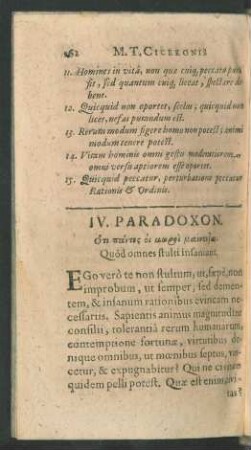 162 M. T. CICERONIS
11. Homines in vitâ, non quæ cuiq; peccata
sit, sed quantum cuiq; liceat, spectare de
bent.
12. Quicquid non oportet, scelus; quicquid non
licet, nefas putandum est.
13. Rerum modum figere homo non potest; animi
modum tenere potest.
14. Vitam hominis omni gestu
omni versu aptiorem esse oportet.
15. Quicquid peccatur, perturbatione peccatur
Rationis & Ordinis.
IV. PARADOXON.
Ὅτι πάντες οἱ μωροὶ μαίνονται
Quòd omnes stulti insaniant.
EGo verò te non stultum, ut sæpè, non
improbum, ut semper, sed demen-
tem, & insanum rationibus evincam ne-
cessariis. Sapientis animus magnitudine
consilii, tolerantiâ rerum humanarum,
contemptione fortunæ, virtutibus de-
nique omnibus, ut mœnibus septus, vin-
cetur, & expugnabitur? Qui ne civitate
quidem pelli potest. Quæ est enim civi-
tas?